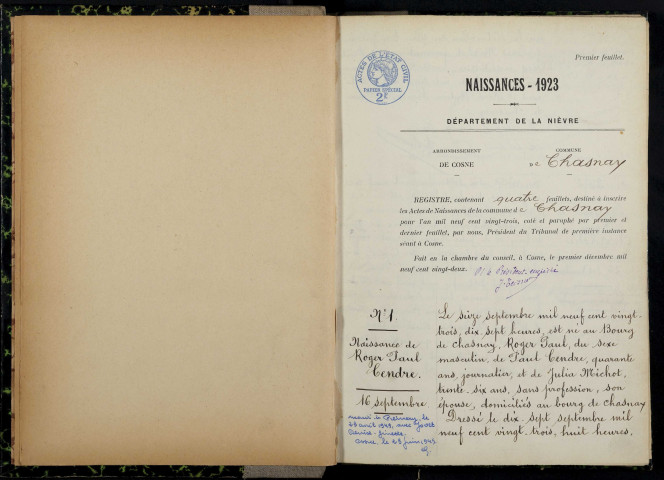 Premier feuillet.
ACTES DE L'ÉTAT CIVIL
PAPIER SPÉCIAL
2F
NAISSANCES - 1923
DÉPARTEMENT DE LA NIÈVRE
ARRONDISSEMENT
DE COSNE
COMMUNE
DE Chasnay
REGISTRE, contenant quatre feuillets, destiné à inscrire
les Actes de Naissances de la commune de Chasnay
pour l'an mil neuf cent vingt-trois, coté et paraphé par premier et
dernier feuillet, par nous, Président du Tribunal de première instance
séant à Cosne.
Fait en la chambre du conseil, à Cosne, le premier décembre mil
neuf cent vingt-deux.
N° 1
Naissance de
Roger Paul
Cendre.
16 septembre
avril 1949, avec
Cosne, le 23 juin 1949
Le seize septembre mil neuf cent vingt-
trois, dix sept heures, est né au Bourg
de Chasnay, Roger Paul, du sexe
masculin, de Paul Cendre, quarante
ans, journalier, et de Julia Michot,
trente-six ans, sans profession, son
épouse, domiciliés au bourg de Chasnay
Dressé le dix sept septembre mil
neuf cent vingt-trois, huit heures.